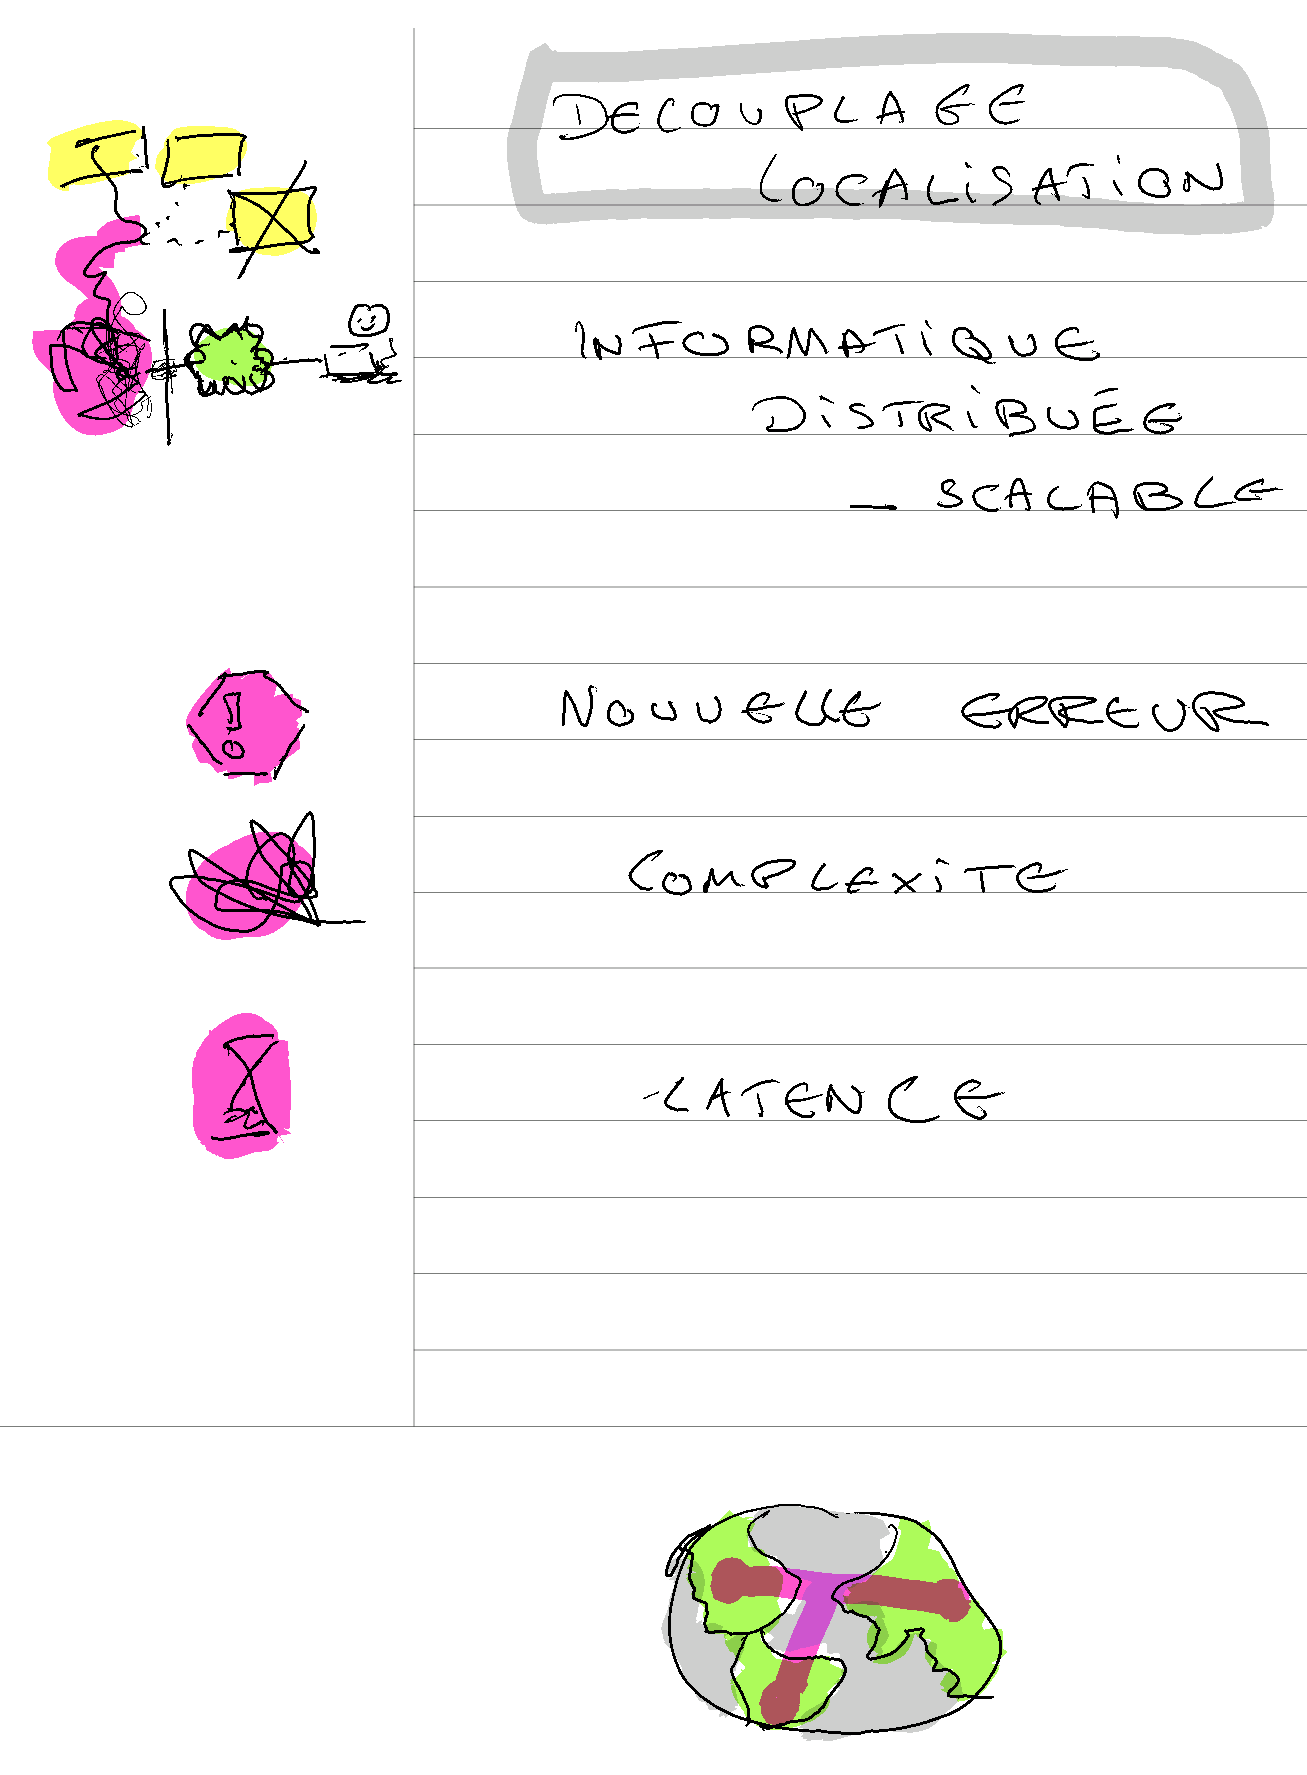 DECOUPLAGE
LOCALISATION
INFORMATIQUE
DISTRIBUÉE
- SCALABLE
NOUVELLE ERREUR
COMPLEXITE
-LATENCE